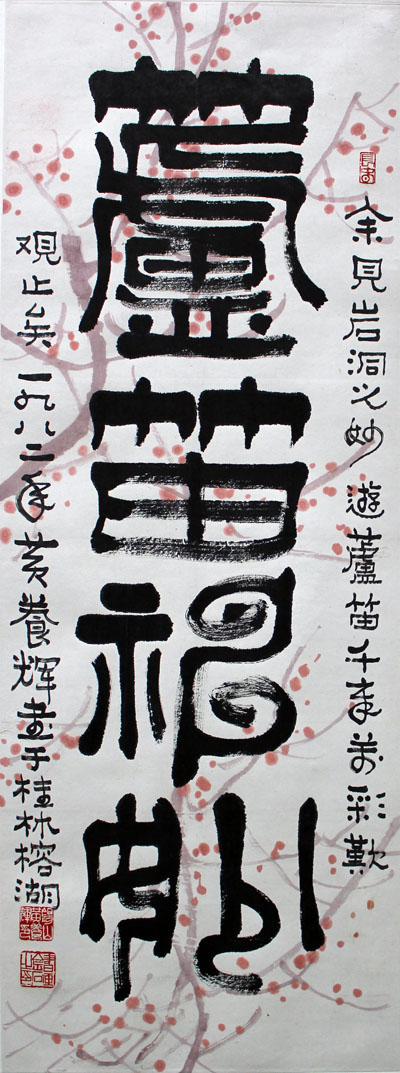 余見岩洞之妙 遊蘆笛千萬彩歎
蘆笛神妙
覌止矣 一九八二年 黄養辉書于桂林榕湖